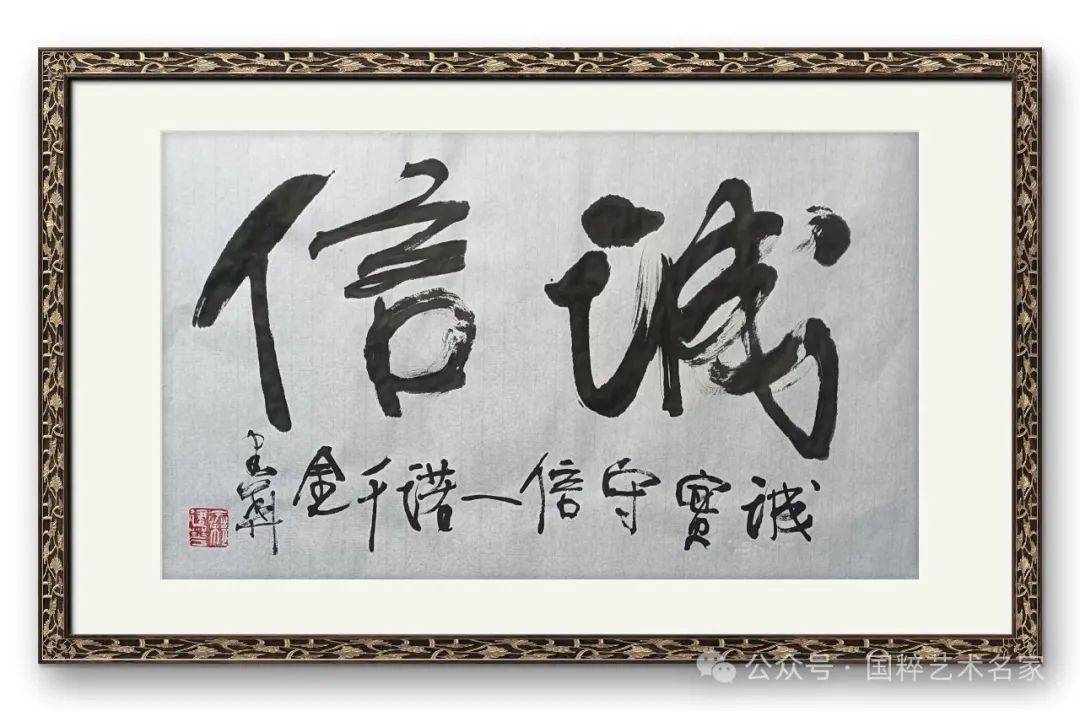 诚信
诚實守信一诺千金
公众号·国粹艺术名家